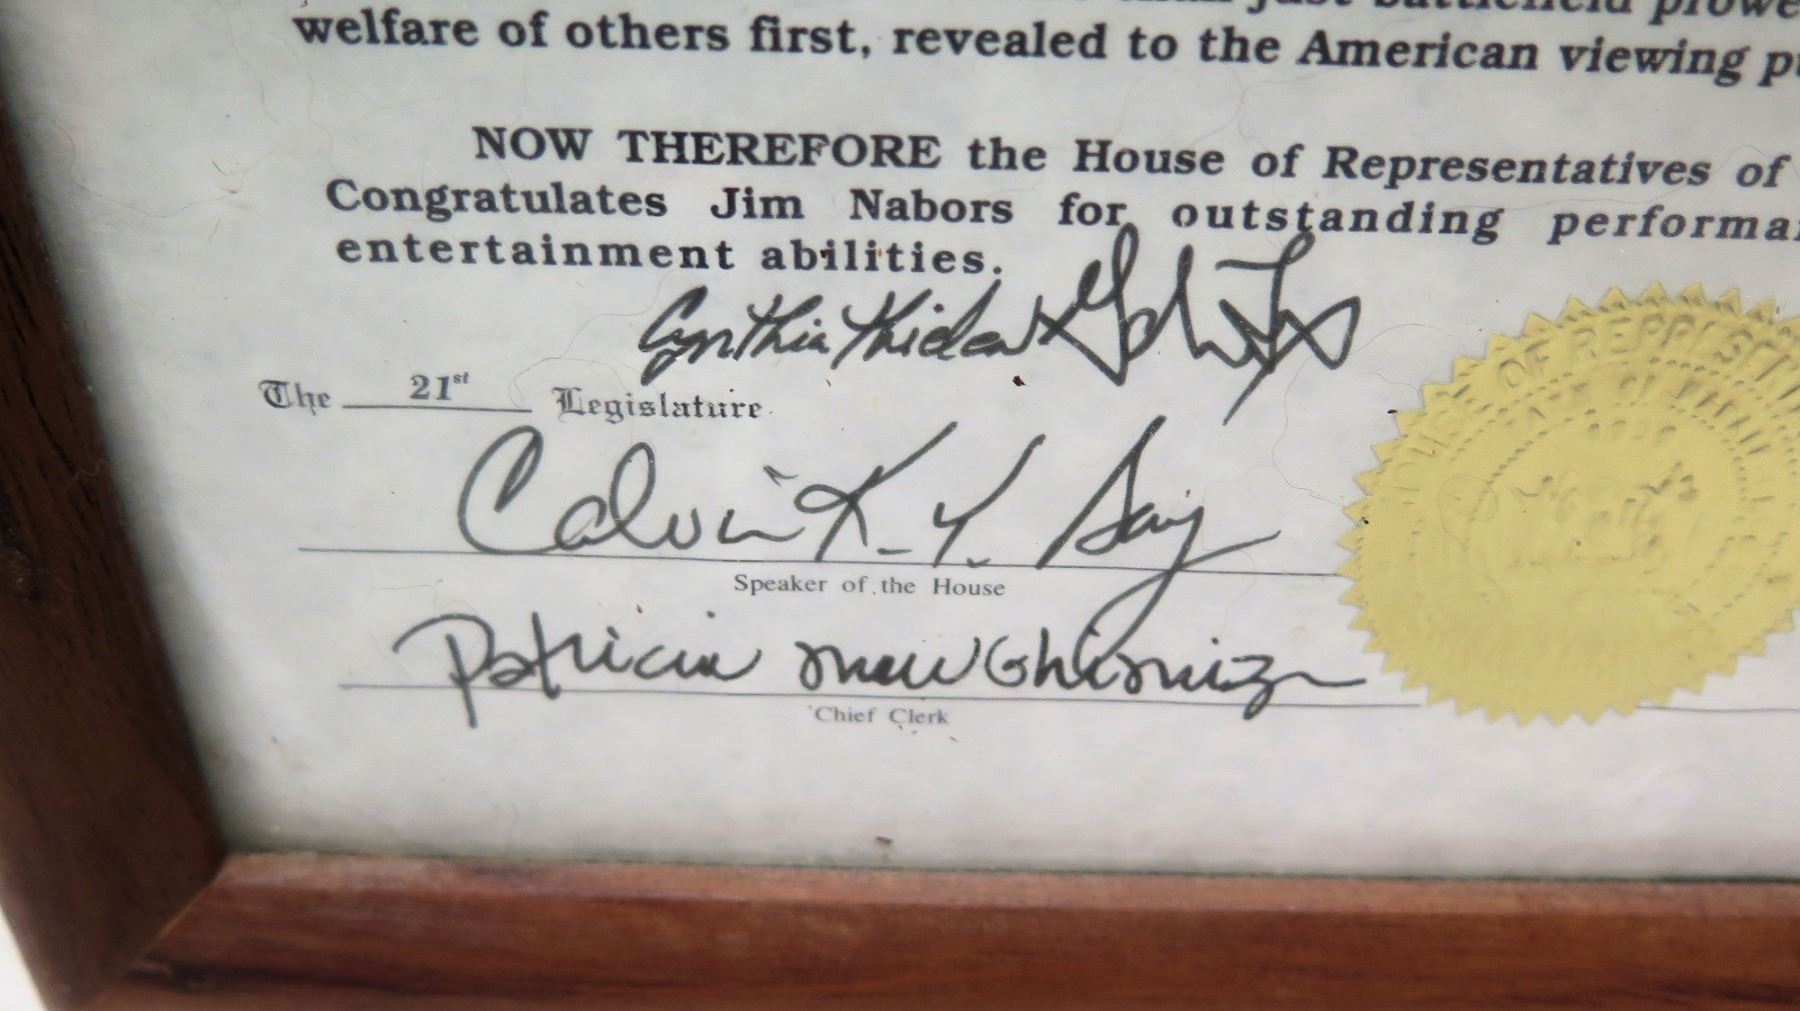 just battlefield prowe
welfare of others first, revealed to the American viewing p
NOW THEREFORE the House of Representatives of
Congratulates Jim Nabors for outstanding performa
entertainment abilities.
Cynthia Thielen
The 21st Legislature
Calvin K. Y. Say
Speaker of the House
Patricia
Chief Clerk
HOUSE OF REPRESENTATI
STATE OF HAWAII